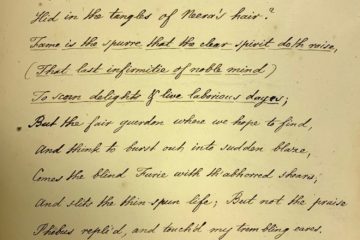 Hid in the tangles of Neera's hair?
Fame is the spurre that the clear spirit doth raise,
(That last infirmitie of noble mind)
To scorn delights & live laborious dayes;
But the fair guerdon where we hope to find,
And think to burst out into sudden blaze,
Comes the blind Furie with th'abhorred shears,
And slits the thin-spun life; But not the praise
Phebus repli'd, and touch'd my trembling eares.